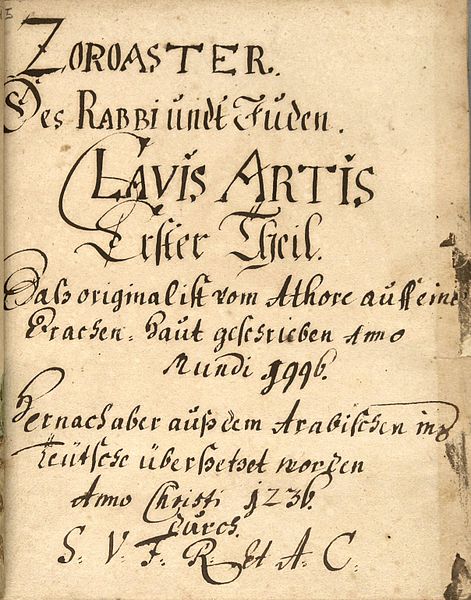 ZOROASTER.
Des RABBI undt Juden.
CLAVIS ARTIS
Erster Theil.
Daß original ist vom Athore auff eine
Drachen-Haut geschrieben Anno
Mundi 1996.
Hernach aber auß dem Arabischen ins
Teütsche übersetzet worden
Anno Christi 1236.
Durch.
S. V. F. R. Et A. C.